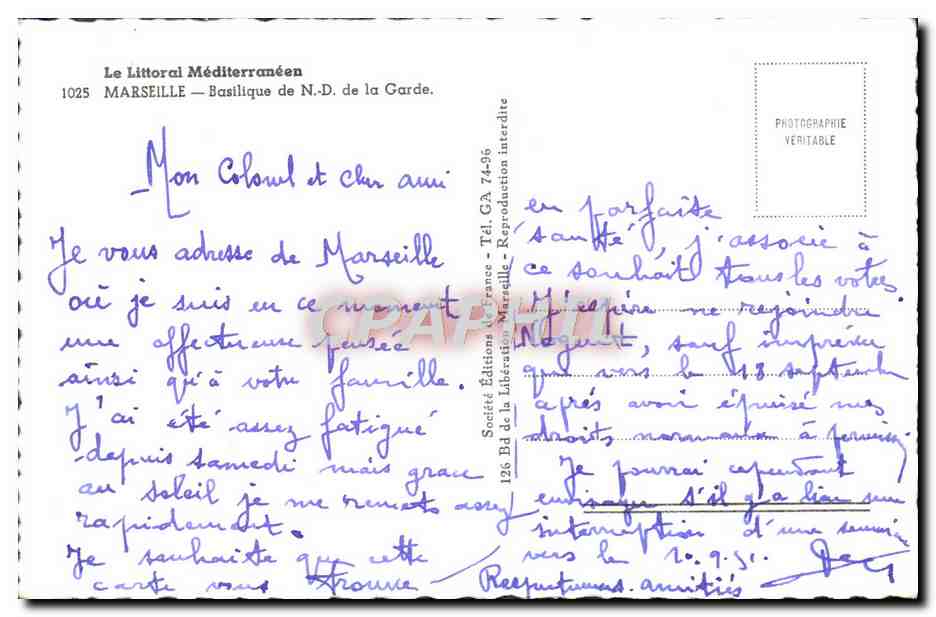 Le Littoral Méditerranéen
1025 MARSEILLE — Basilique de N.-D. de la Garde.
Mon Colonel et cher ami
Je vous adresse de Marseille
où je suis en ce moment
une affectueuse pensée
ainsi qu'à votre famille.
J'ai été assez fatigué
depuis samedi mais grace
au soleil je me remets assez
rapidement.
Je souhaite que cette
carte vous trouve
Société Éditions de France - Tél. GA 74-96
126 Bd de la Libération Marseille - Reproduction interdite
PHOTOGRAPHIE
VÉRITABLE
en parfaite
santé, j'associe à
ce souhait tous les votres
J'espère ne rejoindre
Nogent, sauf imprévu
que vers le 13 septembre
après avoir épuisé mes
droits normaux à
Je pourrai cependant
envisager s'il y a lieu une
interruption d'une semaine
vers le 2.9.51.
Respectueuses amitiés
CPAPHIL